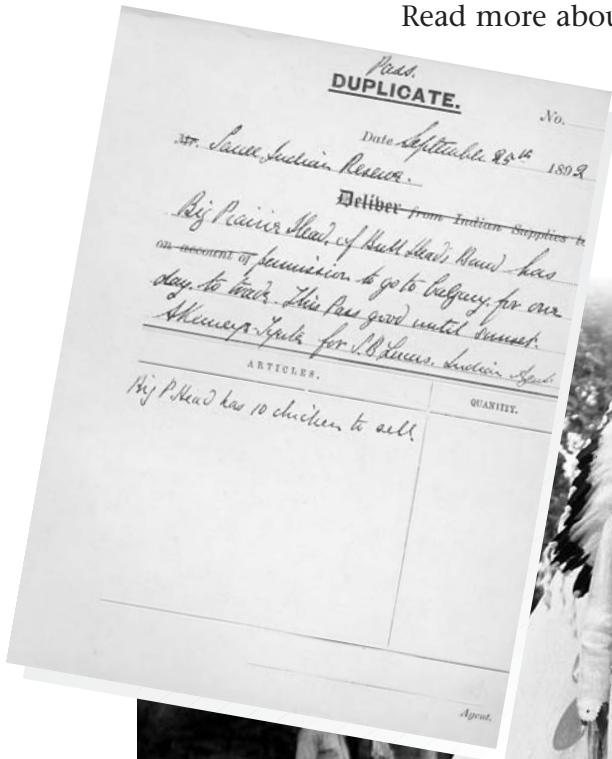 Read more abou
Pass.
DUPLICATE.
No.
Date September 25th 1892
Mr. Sarcee Indian Reserve.
Deliver from Indian Supplies to
Big Prairie Head, of Bull Head's Band has
on account of permission to go to Calgary, for one
day, to trade. This Pass good until sunset.
for S.B. Lucas, Indian Agent.
ARTICLES.
QUANTITY.
Big P. Head has 10 chickens to sell
Agent.